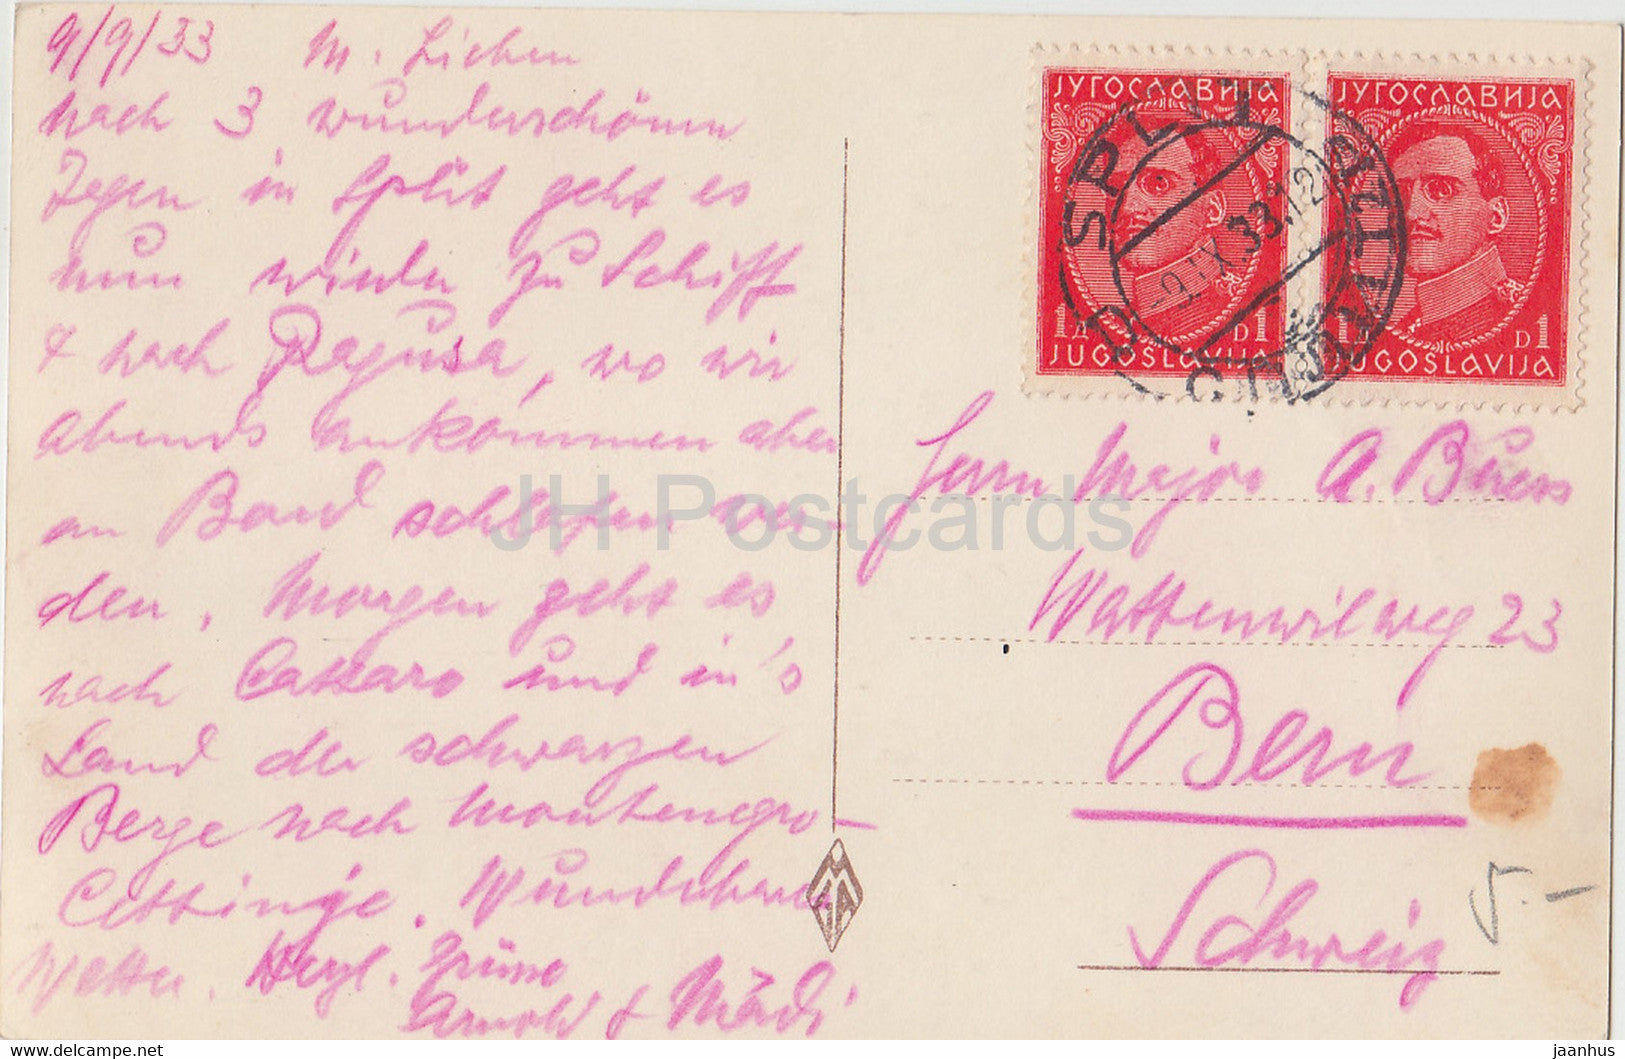 9/9/33 M. Lieben
nach 3 wunderschönen
Tagen in Split geht es
nun wieder zu Schiff
& nach Ragusa, wo wir
abends ankommen aber
an Bord schlafen wer-
den. Morgen geht es
nach Cattaro und in's
Land der schwarzen
Berge nach Montenegro -
Cettinje. Wunderbares
Wetter. Herzl. Grüsse
Arnold &
ЈУГОСЛАВИЈА
1Д D1
JUGOSLAVIJA
ЈУГОСЛАВИЈА
1 D1
JUGOSLAVIJA
SPLIT
-9.IX.33.12
СПЛИТ
Herrn Major A. Buess
Wattenwilweg 23
Bern
Schweiz
5.-
MIA
JH Postcards
www.delcampe.net
jaanhus